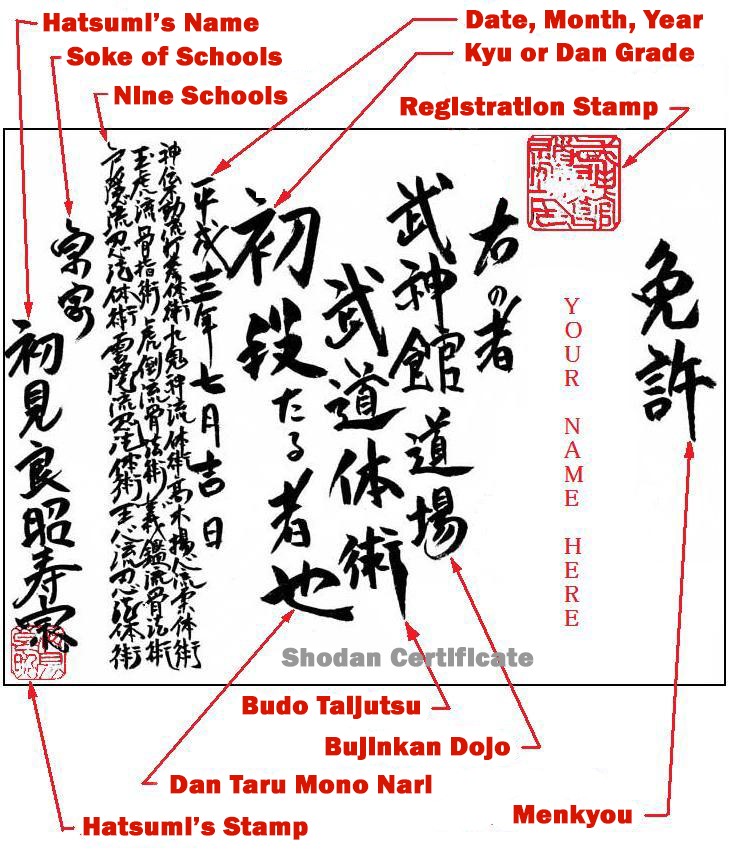 Hatsumi's Name
Soke of Schools
Nine Schools
Date, Month, Year
Kyu or Dan Grade
Registration Stamp
免許
YOUR NAME HERE
右の者
武神館道場
武道体術
初段たる者也
平成十三年七月吉日
神伝不動流打拳体術 九鬼神流体術 高木揚心流柔体術
玉虎流骨指術 虎倒流骨法術 義鑑流骨法術
戸隠流忍法体術 雲隠流忍法体術 玉心流忍法体術
宗家
初見良昭寿宗
Shodan Certificate
Budo Taijutsu
Bujinkan Dojo
Dan Taru Mono Nari
Menkyou
Hatsumi's Stamp